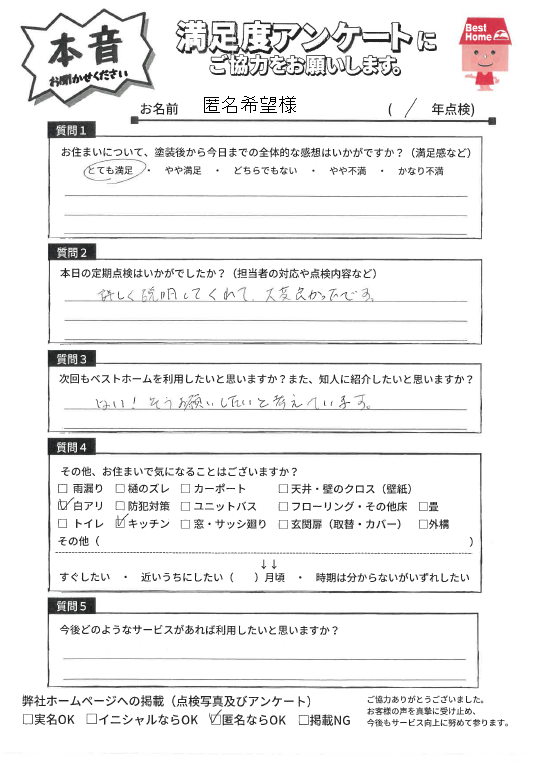 本音
お聞かせください
満足度アンケートに
ご協力をお願いします。
Best
Home
お名前 匿名希望様 ( / 年点検)
質問1
お住まいについて、塗装後から今日までの全体的な感想はいかがですか？（満足感など）
とても満足 ・ やや満足 ・ どちらでもない ・ やや不満 ・ かなり不満
質問2
本日の定期点検はいかがでしたか？（担当者の対応や点検内容など）
詳しく説明してくれて、大変良かったです。
質問3
次回もベストホームを利用したいと思いますか？また、知人に紹介したいと思いますか？
はい！そうお願いしたいと考えています。
質問4
その他、お住まいで気になることはございますか？
□ 雨漏り □ 樋のズレ □ カーポート □ 天井・壁のクロス（壁紙）
☑ 白アリ □ 防犯対策 □ ユニットバス □ フローリング・その他床 □畳
□ トイレ ☑ キッチン □ 窓・サッシ廻り □ 玄関扉（取替・カバー） □外構
その他（ ）
↓↓
すぐしたい ・ 近いうちにしたい（ ）月頃 ・ 時期は分からないがいずれしたい
質問5
今後どのようなサービスがあれば利用したいと思いますか？
弊社ホームページへの掲載（点検写真及びアンケート）
□実名OK □イニシャルならOK ☑匿名ならOK □掲載NG
ご協力ありがとうございました。
お客様の声を真摯に受け止め、
今後もサービス向上に努めて参ります。